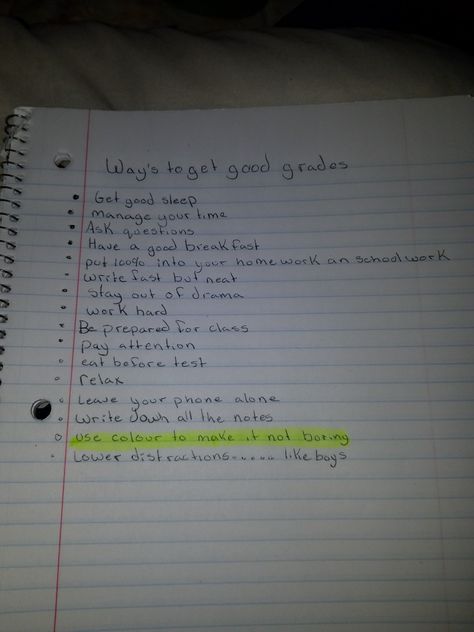 Way's to get good grades
• Get good sleep
• manage your time
• Ask questions
• Have a good breakfast
• put 100% into your homework an schoolwork
• write fast but neat
• stay out of drama
• work hard
• Be prepared for class
• pay attention
• eat before test
• relax
• Leave your phone alone
• Write down all the notes
• use colour to make it not boring
• Lower distractions...... like boys